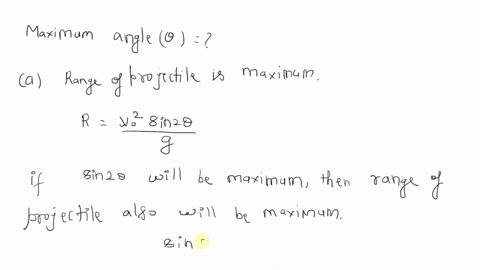 Maximum angle (θ) = ?
(a) Range of projectile is maximum.
R = v₀² sin2θ / g
if sin2θ will be maximum, then range of
projectile also will be maximum.
sin